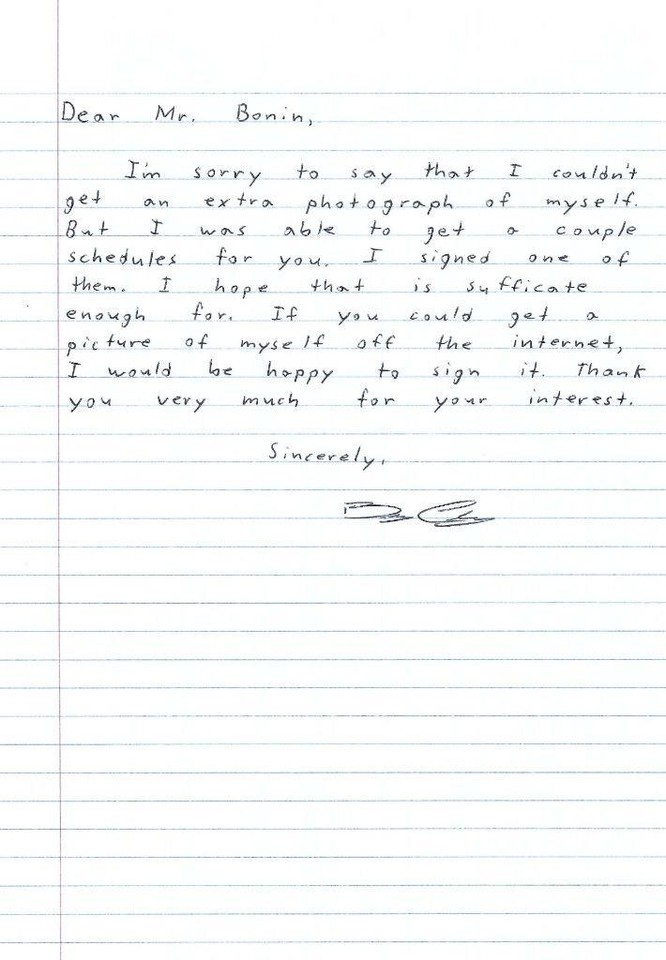 Dear Mr. Bonin,
I'm sorry to say that I couldn't
get an extra photograph of myself.
But I was able to get a couple
schedules for you. I signed one of
them. I hope that is sufficate
enough for. If you could get a
picture of myself off the internet,
I would be happy to sign it. Thank
you very much for your interest.
Sincerely,